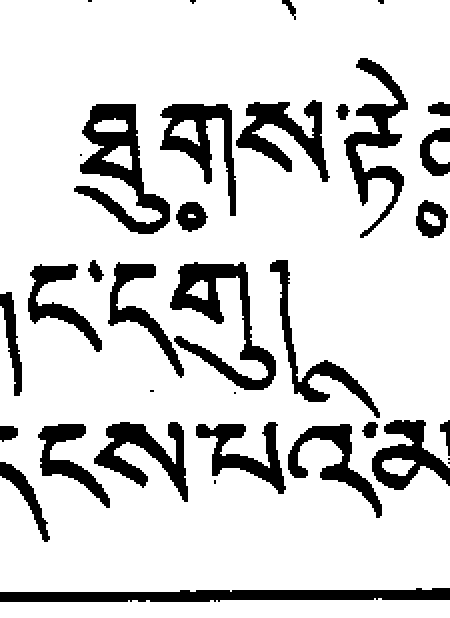 ཐུགས་རྟེ
ང་དགུ།
དངས་པའི་མ